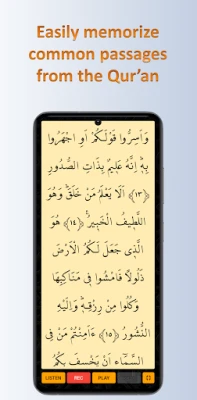 Easily memorize
common passages
from the Qur’an
وَأَسِرُّوا قَوْلَكُمْ أَوِ اجْهَرُوا
بِهِ إِنَّهُ عَلِيمٌ بِذَاتِ الصُّدُورِ
﴿١٣﴾ أَلَا يَعْلَمُ مَنْ خَلَقَ وَهُوَ
اللَّطِيفُ الْخَبِيرُ ﴿١٤﴾ هُوَ
الَّذِي جَعَلَ لَكُمُ الْأَرْضَ
ذَلُولًا فَامْشُوا فِي مَنَاكِبِهَا
وَكُلُوا مِنْ رِزْقِهِ وَإِلَيْهِ
النُّشُورُ ﴿١٥﴾ ءَأَمِنْتُمْ مَنْ فِي
السَّمَاءِ أَنْ يَخْسِفَ بِكُمُ
LISTEN REC PLAY